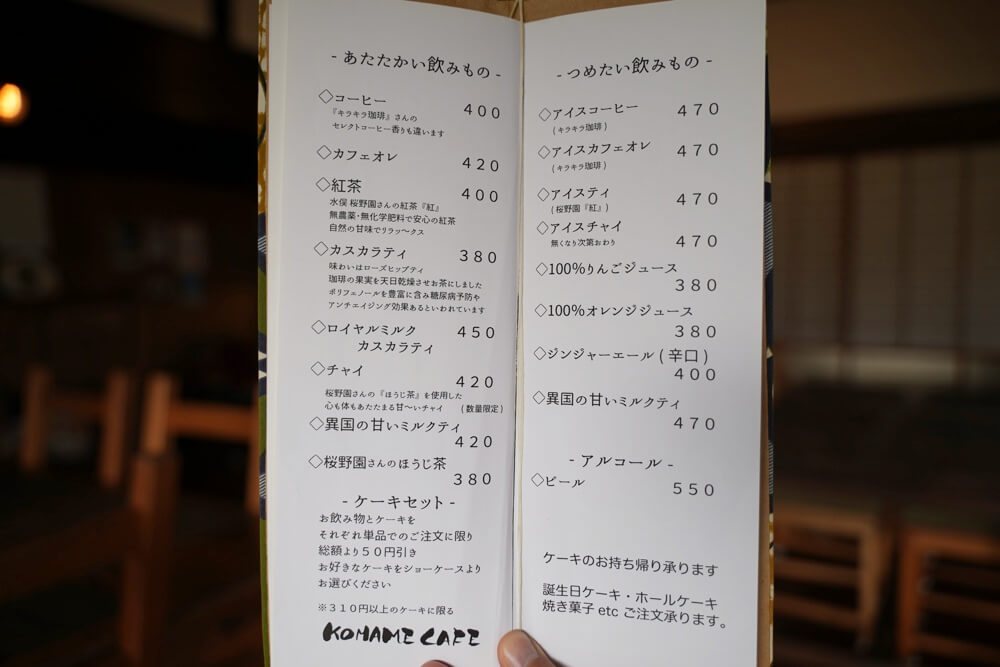 - あたたかい飲みもの -
◇コーヒー 400
『キラキラ珈琲』さんの
セレクトコーヒー香りも違います
◇カフェオレ 420
◇紅茶 400
水俣 桜野園さんの紅茶『紅』
無農薬・無化学肥料で安心の紅茶
自然の甘味でリラッ〜クス
◇カスカラティ 380
味わいはローズヒップティ
珈琲の果実を天日乾燥させお茶にしました
ポリフェノールを豊富に含み糖尿病予防や
アンチエイジング効果あるといわれています
◇ロイヤルミルク 450
カスカラティ
◇チャイ 420
桜野園さんの『ほうじ茶』を使用した
心も体もあたたまる甘〜いチャイ (数量限定)
◇異国の甘いミルクティ
420
◇桜野園さんのほうじ茶
380
- ケーキセット -
お飲み物とケーキを
それぞれ単品でのご注文に限り
総額より50円引き
お好きなケーキをショーケースより
お選びください
※310円以上のケーキに限る
KOMAME CAFE
- つめたい飲みもの -
◇アイスコーヒー 470
(キラキラ珈琲)
◇アイスカフェオレ 470
(キラキラ珈琲)
◇アイスティ 470
(桜野園『紅』)
◇アイスチャイ 470
無くなり次第おわり
◇100%りんごジュース
380
◇100%オレンジジュース
380
◇ジンジャーエール (辛口)
400
◇異国の甘いミルクティ
470
- アルコール -
◇ビール 550
ケーキのお持ち帰り承ります
誕生日ケーキ・ホールケーキ
焼き菓子 etc ご注文承ります。